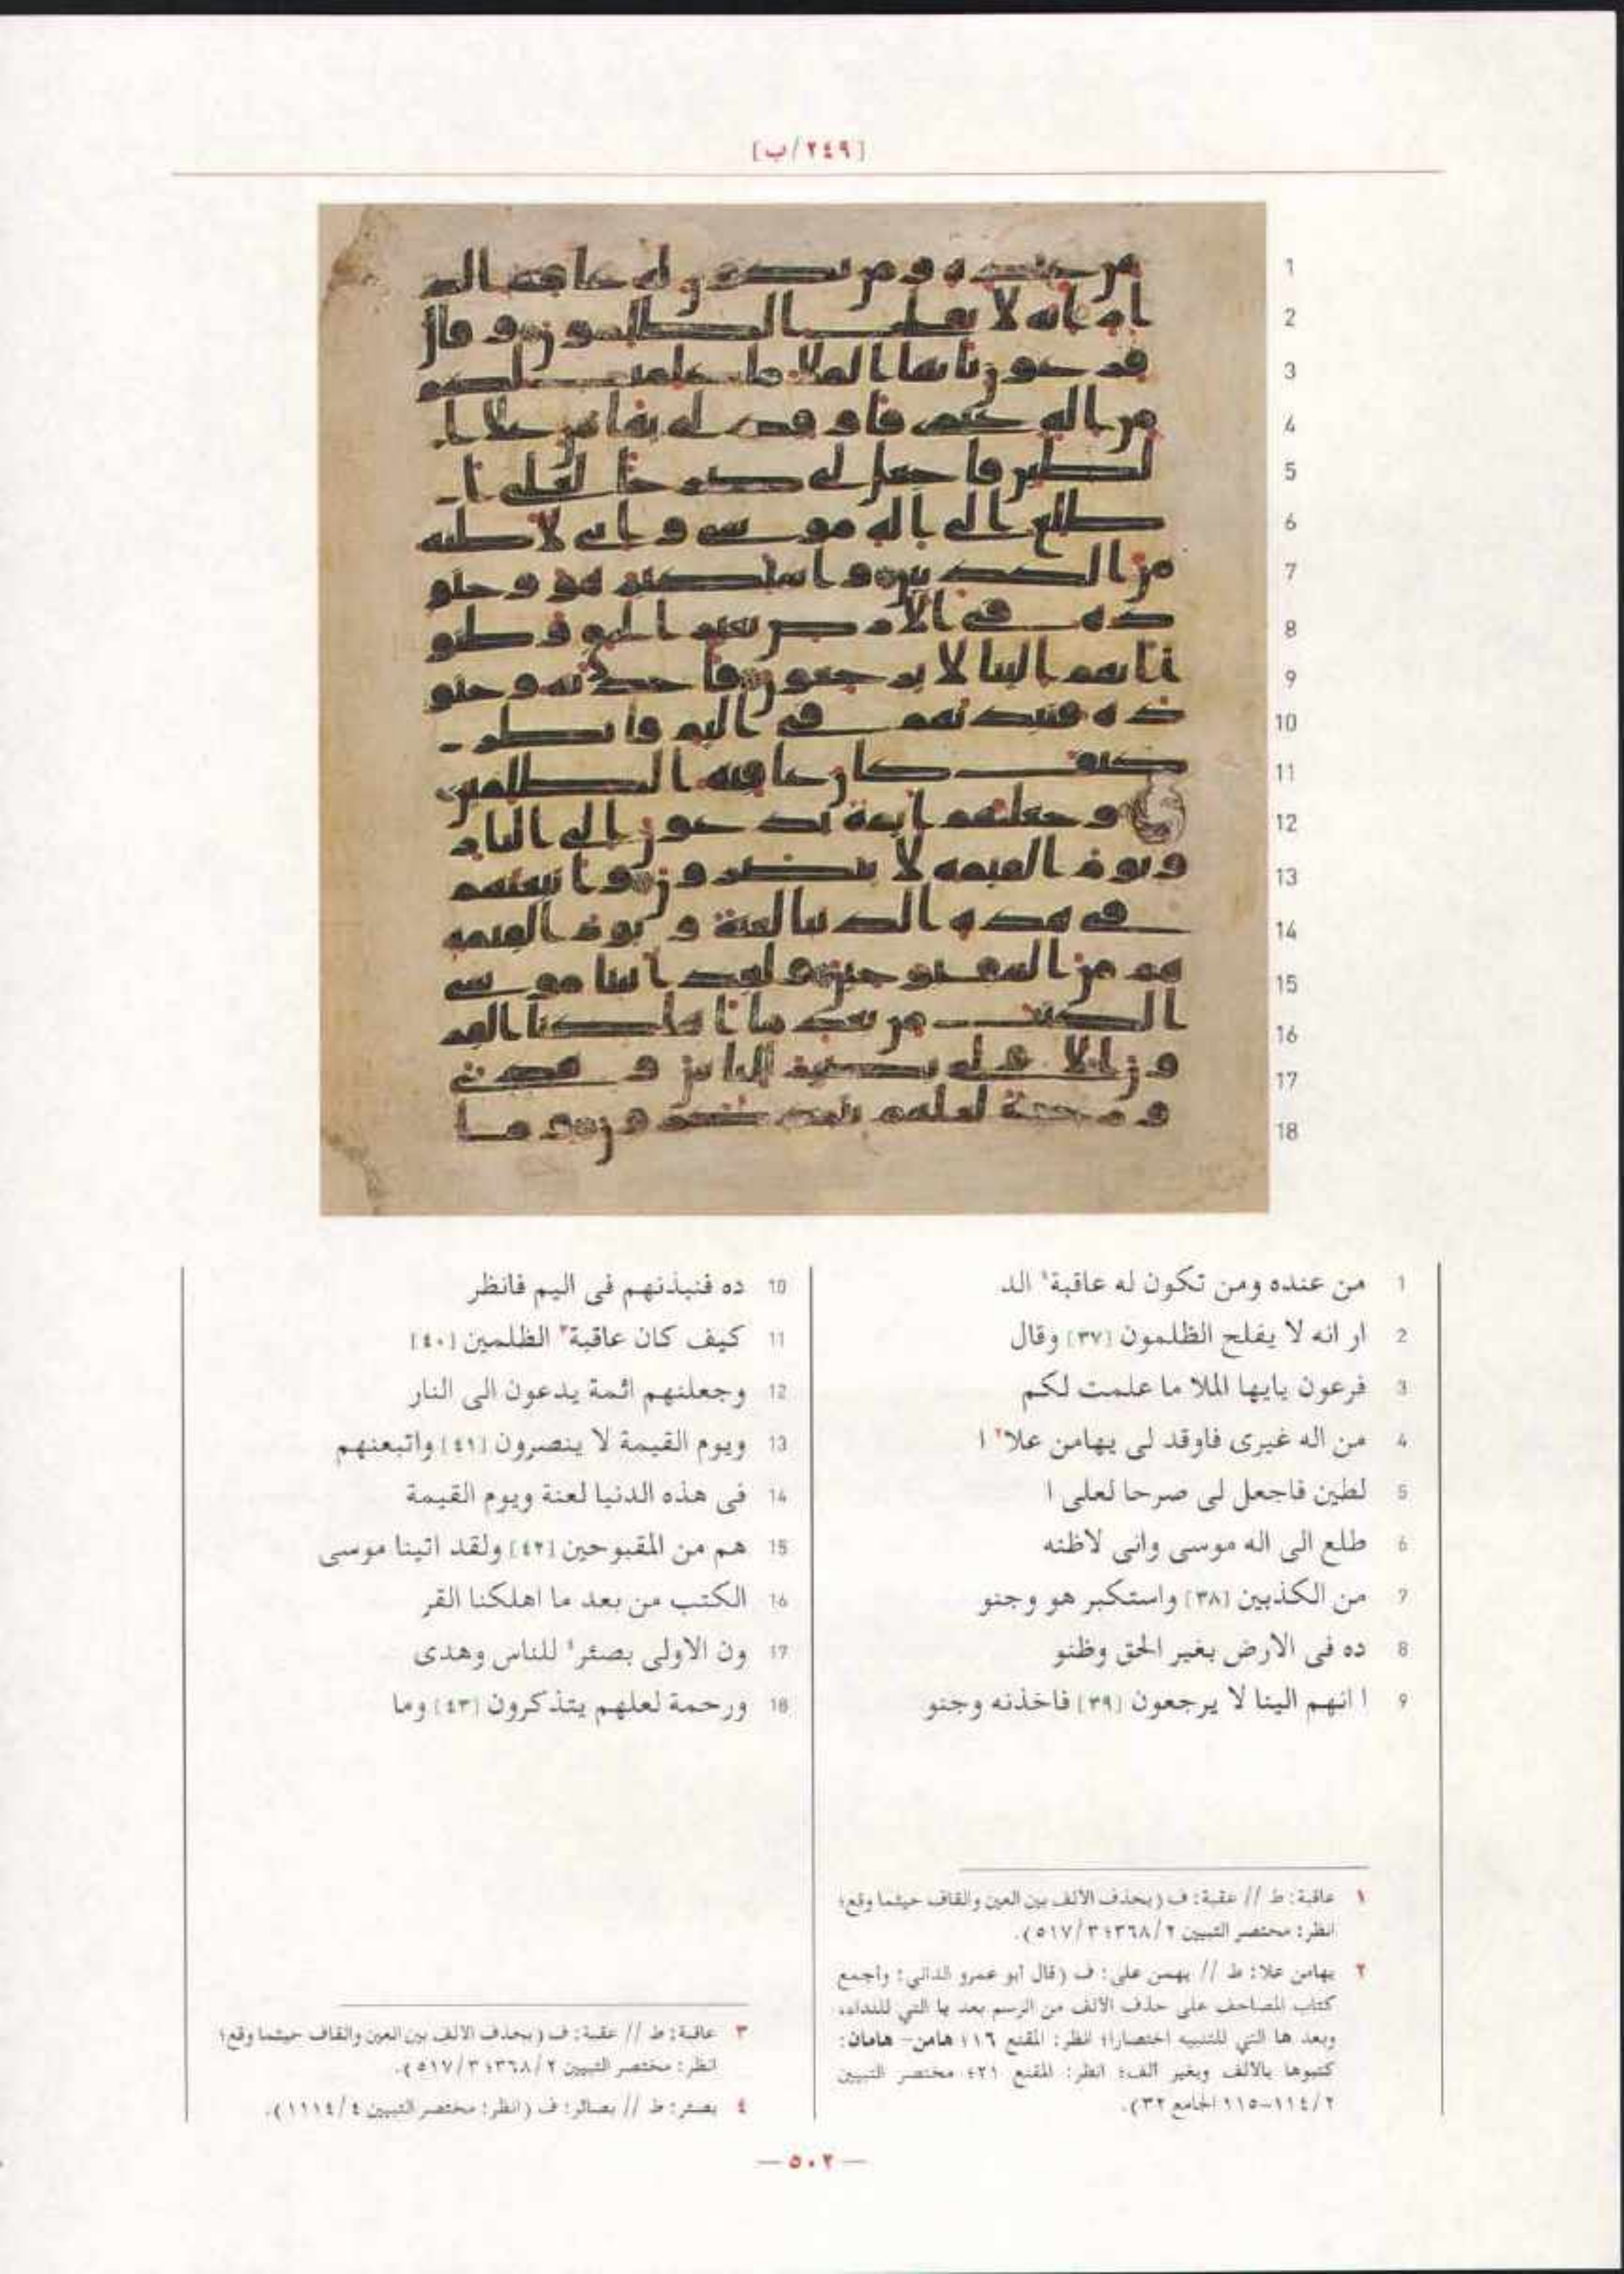 [٢٤٩/ب]
1 من عنده ومن تكون له عاقبة١ الد
2 ار انه لا يفلح الظلمون [٣٧] وقال
3 فرعون يايها الملا ما علمت لكم
4 من اله غيرى فاوقد لى يهامن علا٢ ا
5 لطين فاجعل لى صرحا لعلى ا
6 طلع الى اله موسى وانى لاظنه
7 من الكذبين [٣٨] واستكبر هو وجنو
8 ده فى الارض بغير الحق وظنو
9 ا انهم الينا لا يرجعون [٣٩] فاخذنه وجنو
10 ده فنبذنهم فى اليم فانظر
11 كيف كان عاقبة٣ الظلمين [٤٠]
12 وجعلنهم ائمة يدعون الى النار
13 ويوم القيمة لا ينصرون [٤١] واتبعنهم
14 فى هذه الدنيا لعنة ويوم القيمة
15 هم من المقبوحين [٤٢] ولقد اتينا موسى
16 الكتب من بعد ما اهلكنا القر
17 ون الاولى بصئر٤ للناس وهدى
18 ورحمة لعلهم يتذكرون [٤٣] وما
١ عاقبة: ط // عقبة: ف (بحذف الالف بين العين والقاف حيثما وقع؛
انظر: مختصر التبيين ٣٦٨/٢؛ ٥١٧/٣).
٢ يهامن علا: ط // يهمن على: ف (قال أبو عمرو الداني: وأجمع
كتاب المصاحف على حذف الالف من الرسم بعد يا التي للنداء،
وبعد ها التي للتنبيه اختصارا؛ انظر: المقنع ١٦؛ هامن- هامان:
كتبوها بالالف وبغير ألف؛ انظر: المقنع ٢١؛ مختصر التبيين
١١٤/٢-١١٥؛ الجامع ٣٢).
٣ عاقبة: ط // عقبة: ف (بحذف الالف بين العين والقاف حيثما وقع؛
انظر: مختصر التبيين ٣٦٨/٢؛ ٥١٧/٣).
٤ بصئر: ط // بصائر: ف (انظر: مختصر التبيين ١١١٤/٤).
— ٥٠٢ —